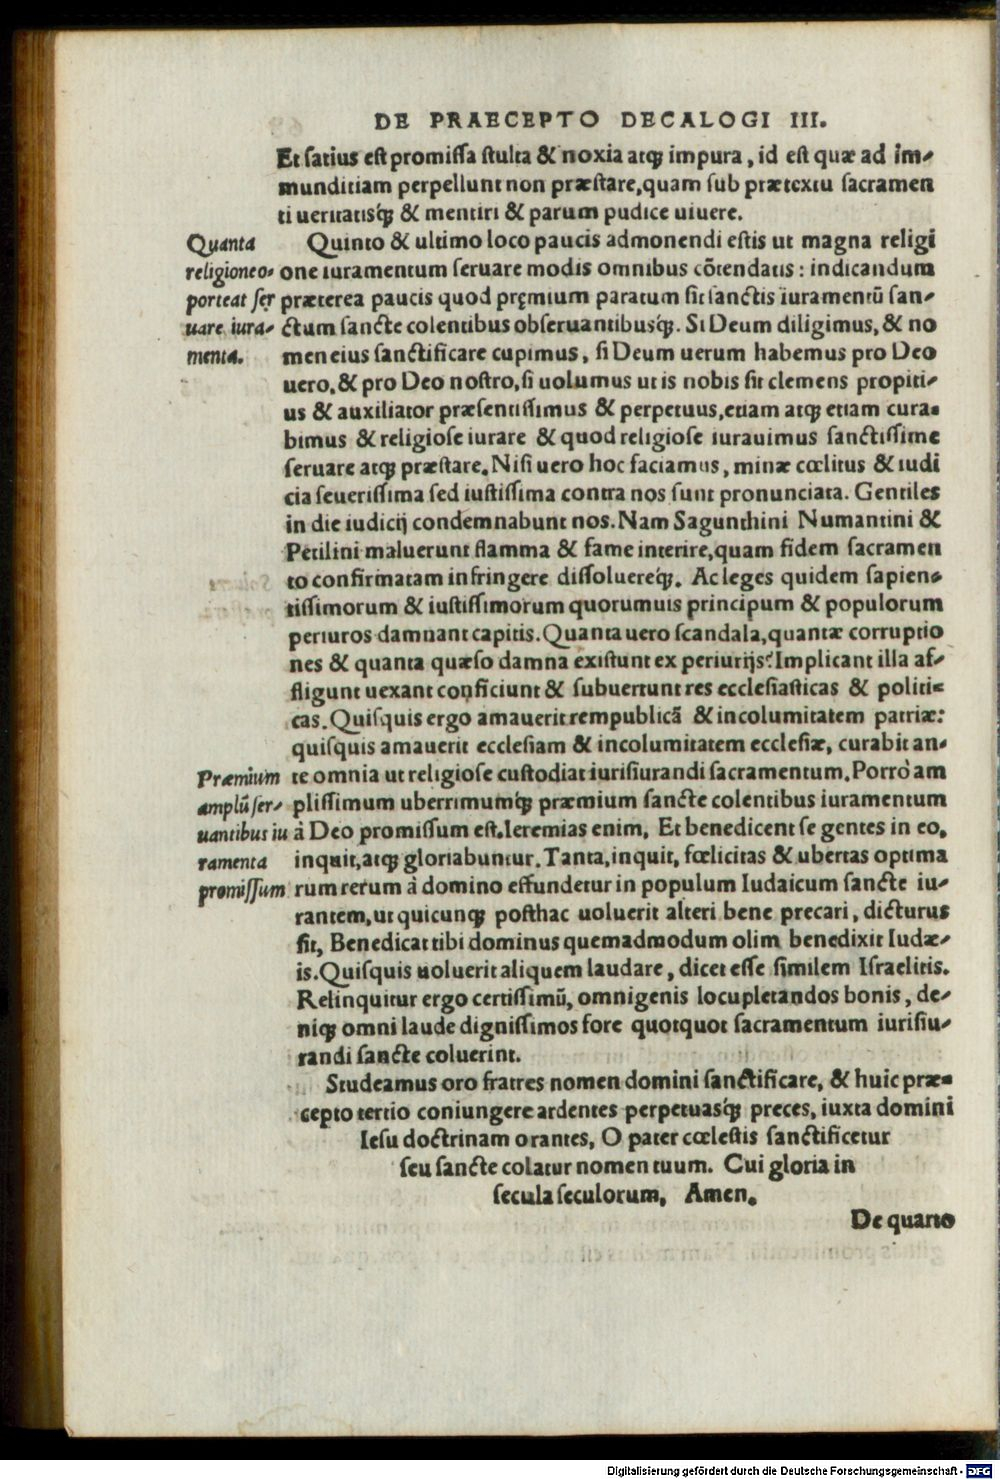 DE PRAECEPTO DECALOGI III.
Et satius est promissa stulta & noxia atq́; impura, id est quæ ad im-
munditiam perpellunt non præstare, quam sub prætextu sacramen
ti ueritatisq́; & mentiri & parum pudice uiuere.
Quanta
religione o-
porteat ser
uare iura-
menta.
Quinto & ultimo loco paucis admonendi estis ut magna religi
one iuramentum seruare modis omnibus cõtendatis: indicandum
præterea paucis quod pręmium paratum sit sanctis iuramentũ san-
ctum sancte colentibus obseruantibusq́;. Si Deum diligimus, & no
men eius sanctificare cupimus, si Deum uerum habemus pro Deo
uero, & pro Deo nostro, si uolumus ut is nobis sit clemens propiti-
us & auxiliator præsentissimus & perpetuus, etiam atq; etiam cura-
bimus & religiose iurare & quod religiose iurauimus sanctissime
seruare atq; præstare. Nisi uero hoc faciamus, minæ cœlitus & iudi
cia seuerissima sed iustissima contra nos sunt pronunciata. Gentiles
in die iudicij condemnabunt nos. Nam Sagunthini Numantini &
Petilini maluerunt flamma & fame interire, quam fidem sacramen
to confirmatam infringere dissoluereq́;. Ac leges quidem sapien-
tissimorum & iustissimorum quorumuis principum & populorum
periuros damnant capitis. Quanta uero scandala, quantæ corruptio
nes & quanta quæso damna existunt ex periurijs? Implicant illa af-
fligunt uexant conficiunt & subuertunt res ecclesiasticas & politi-
cas. Quisquis ergo amauerit rempublicã & incolumitatem patriæ:
quisquis amauerit ecclesiam & incolumitatem ecclesiæ, curabit an-
te omnia ut religiose custodiat iurisiurandi sacramentum. Porrò am
Præmium
amplũ ser-
uantibus iu
ramenta
promissum
plissimum uberrimumq́; præmium sancte colentibus iuramentum
à Deo promissum est. Ieremias enim, Et benedicent se gentes in eo,
inquit, atq; gloriabuntur. Tanta, inquit, fœlicitas & ubertas optima
rum rerum à domino effundetur in populum Iudaicum sancte iu-
rantem, ut quicunq; posthac uoluerit alteri bene precari, dicturus
sit, Benedicat tibi dominus quemadmodum olim benedixit Iudæ-
is. Quisquis uoluerit aliquem laudare, dicet esse similem Israelitis.
Relinquitur ergo certissimũ, omnigenis locupletandos bonis, de-
niq; omni laude dignissimos fore quotquot sacramentum iurisiu-
randi sancte coluerint.
Studeamus oro fratres nomen domini sanctificare, & huic præ-
cepto tertio coniungere ardentes perpetuasq́; preces, iuxta domini
Iesu doctrinam orantes, O pater cœlestis sanctificetur
seu sancte colatur nomen tuum. Cui gloria in
secula seculorum, Amen.
De quarto
Digitalisierung gefördert durch die Deutsche Forschungsgemeinschaft - DFG